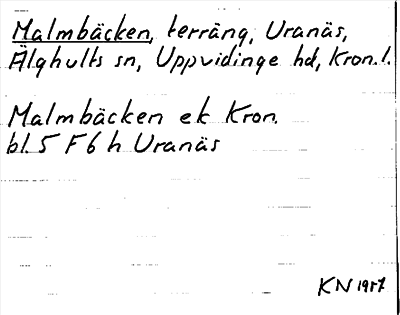 Malmbäcken, terräng, Uranäs,
Älghults sn, Uppvidinge hd, Kron. l.
Malmbäcken ek Kron.
bl. 5 F 6 h Uranäs
KN 1987